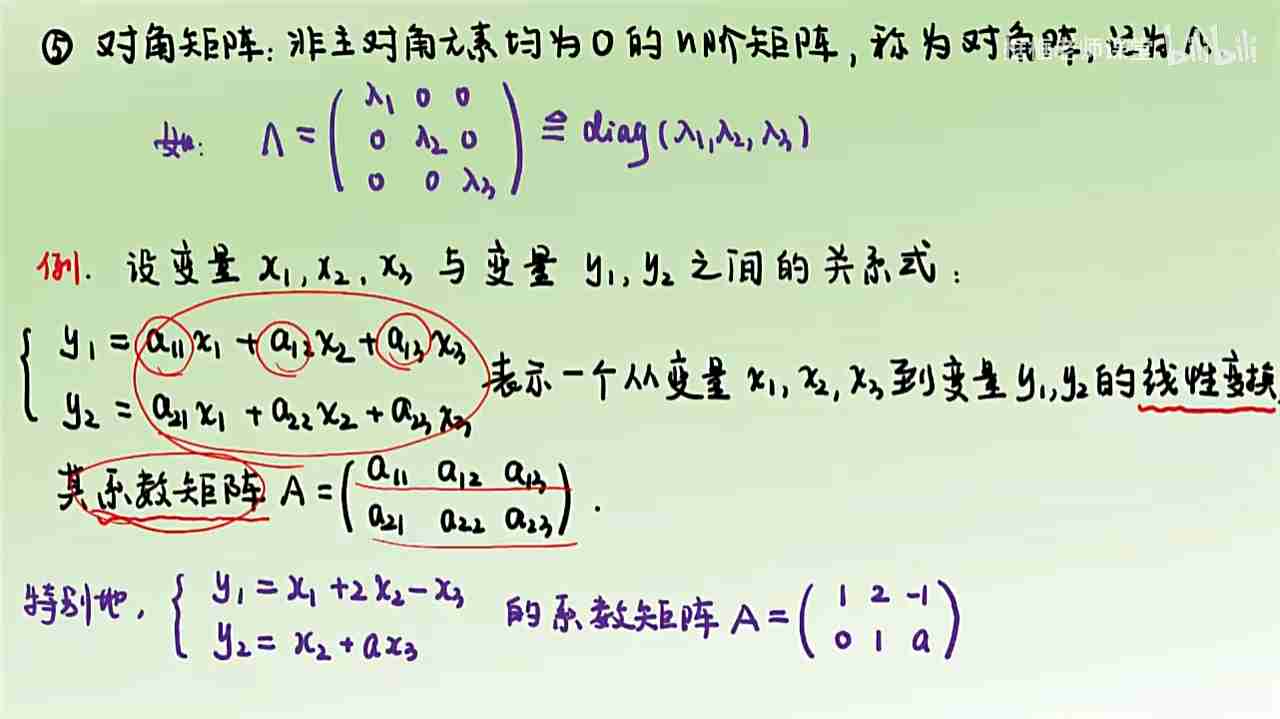 ⑤ 对角矩阵：非主对角元素均为0的n阶矩阵，称为对角阵，记为Λ
bilibili
如： Λ = ( λ₁ 0 0
0 λ₂ 0
0 0 λ₃ ) ≜ diag(λ₁,λ₂,λ₃)
例. 设变量 x₁, x₂, x₃ 与变量 y₁, y₂ 之间的关系式：
{ y₁ = a₁₁x₁ + a₁₂x₂ + a₁₃x₃
y₂ = a₂₁x₁ + a₂₂x₂ + a₂₃x₃
表示一个从变量 x₁, x₂, x₃ 到变量 y₁,y₂ 的线性变换.
其系数矩阵 A = ( a₁₁ a₁₂ a₁₃
a₂₁ a₂₂ a₂₃ ) .
特别地， { y₁ = x₁ + 2x₂ − x₃
y₂ = x₂ + ax₃
的系数矩阵 A = ( 1 2 -1
0 1 a )